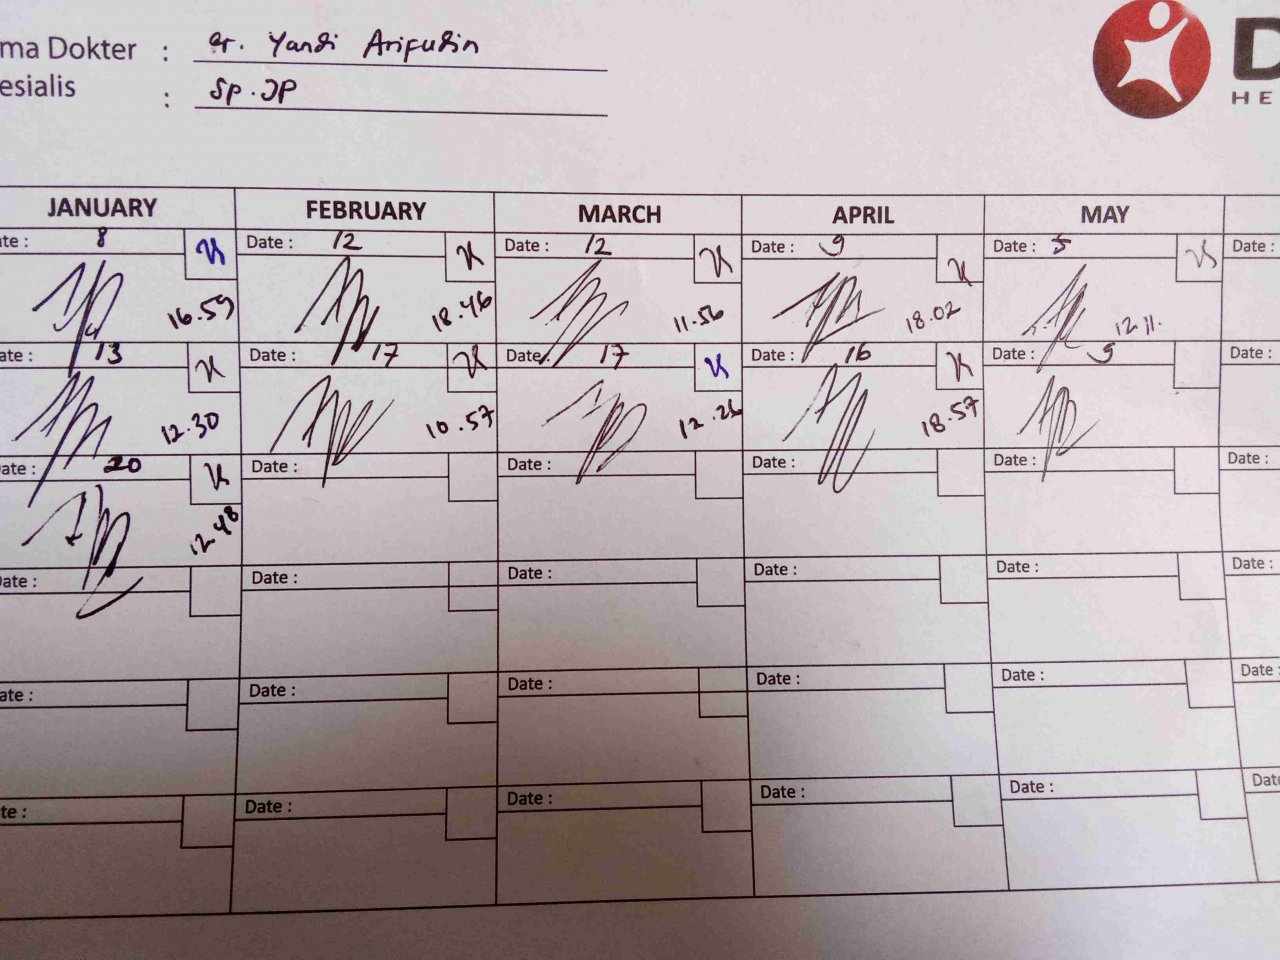 ma Dokter : dr. Yandi Arifudin
esialis : Sp.JP
D
HE
JANUARY FEBRUARY MARCH APRIL MAY
ate : 8 Date : 12 Date : 12 Date : 9 Date : 5 Date :
16.59 18.46 11.56 18.02 12.11.
ate : 13 Date : 17 Date : 17 Date : 16 Date : 9 Date :
12.30 10.57 12.26 18.57
Date : 20 Date : Date : Date : Date : Date :
12.48
Date : Date : Date : Date : Date : Date :
ate : Date : Date : Date : Date : Date
te : Date : Date : Date : Date : Dat